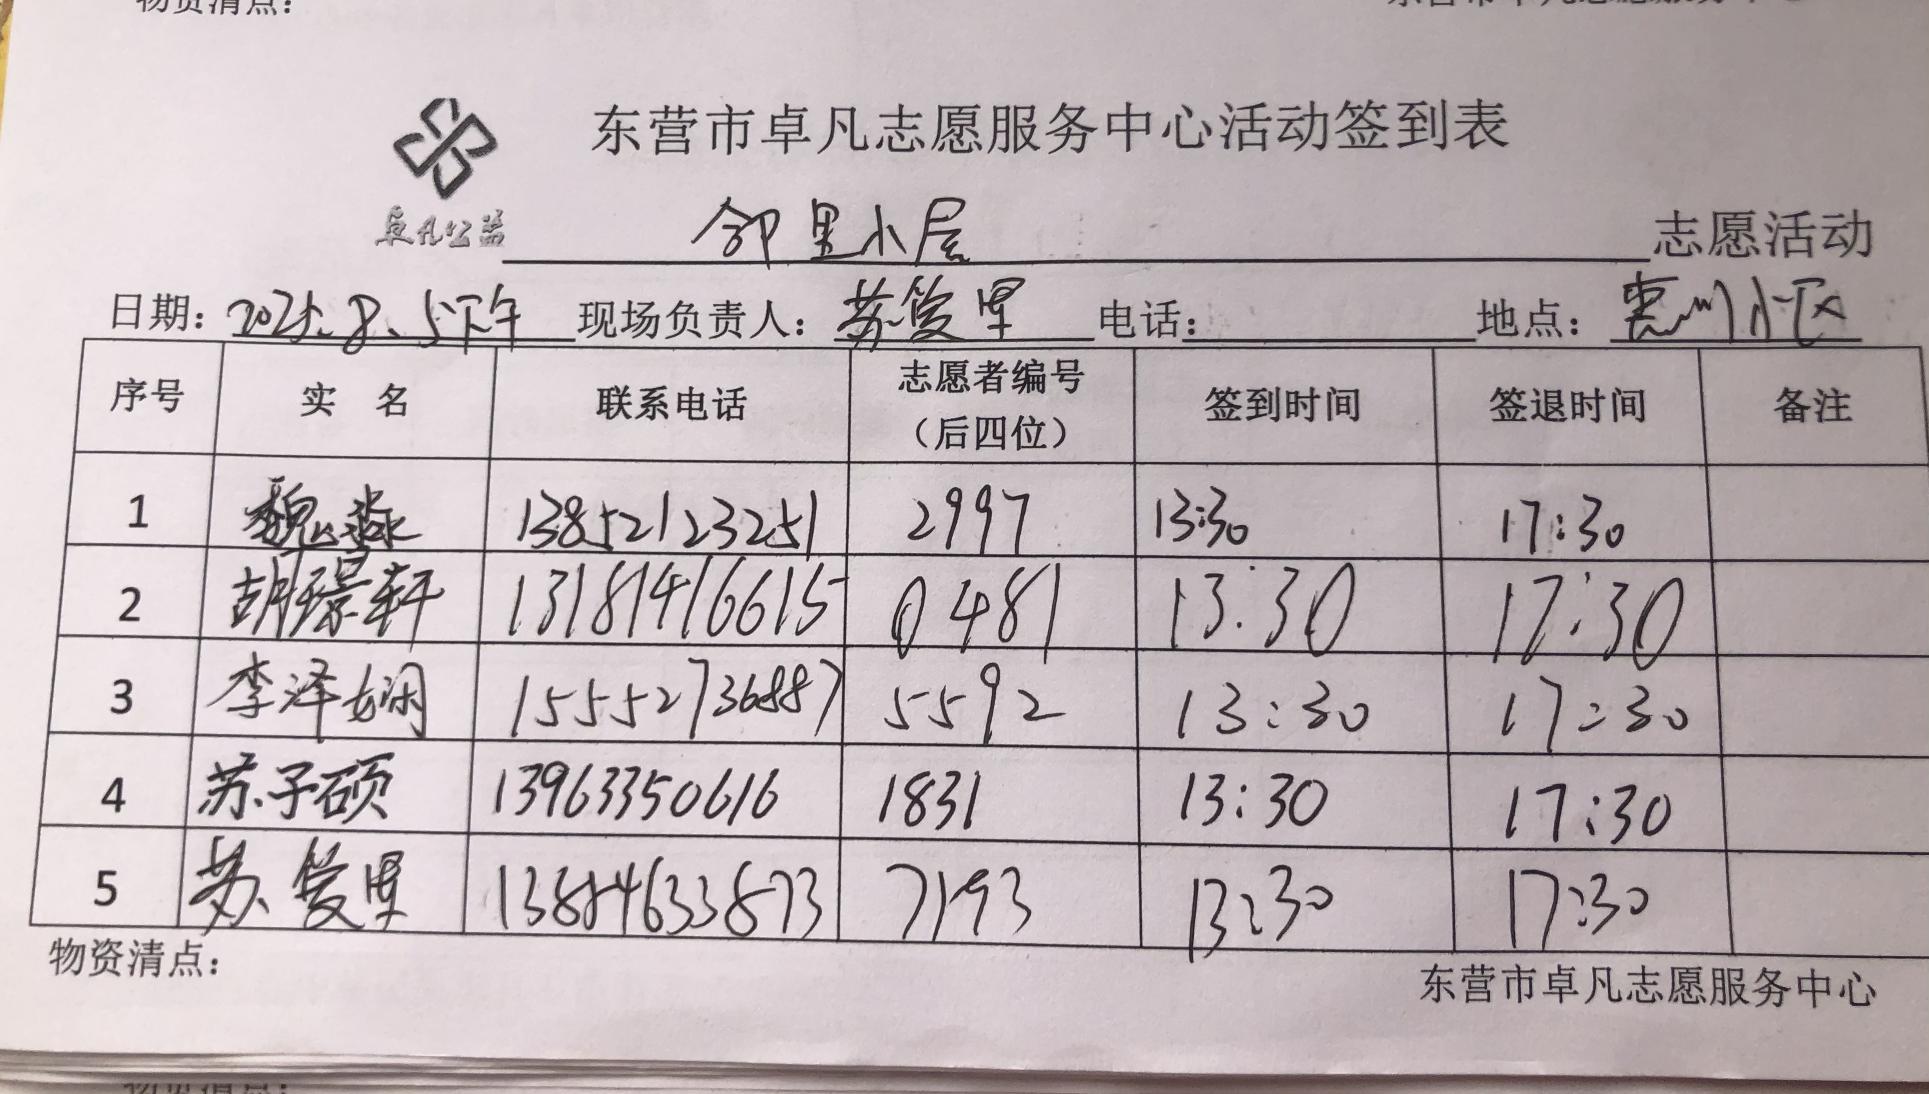 物资清点：
东营市卓凡志愿服务中心
东营市卓凡志愿服务中心活动签到表
卓凡公益
邻里小屋 志愿活动
日期：2025.8.5下午 现场负责人：苏 电话： 地点：惠州小区
序号 实 名 联系电话 志愿者编号（后四位） 签到时间 签退时间 备注
1 魏淼 13852123251 2997 13:30 17:30
2 胡璟轩 13181416615 0481 13:30 17:30
3 李泽娴 15552736887 5592 13:30 17:30
4 苏子硕 13963350616 1831 13:30 17:30
5 苏 13884633873 7193 13:30 17:30
物资清点：
东营市卓凡志愿服务中心
物资清点：